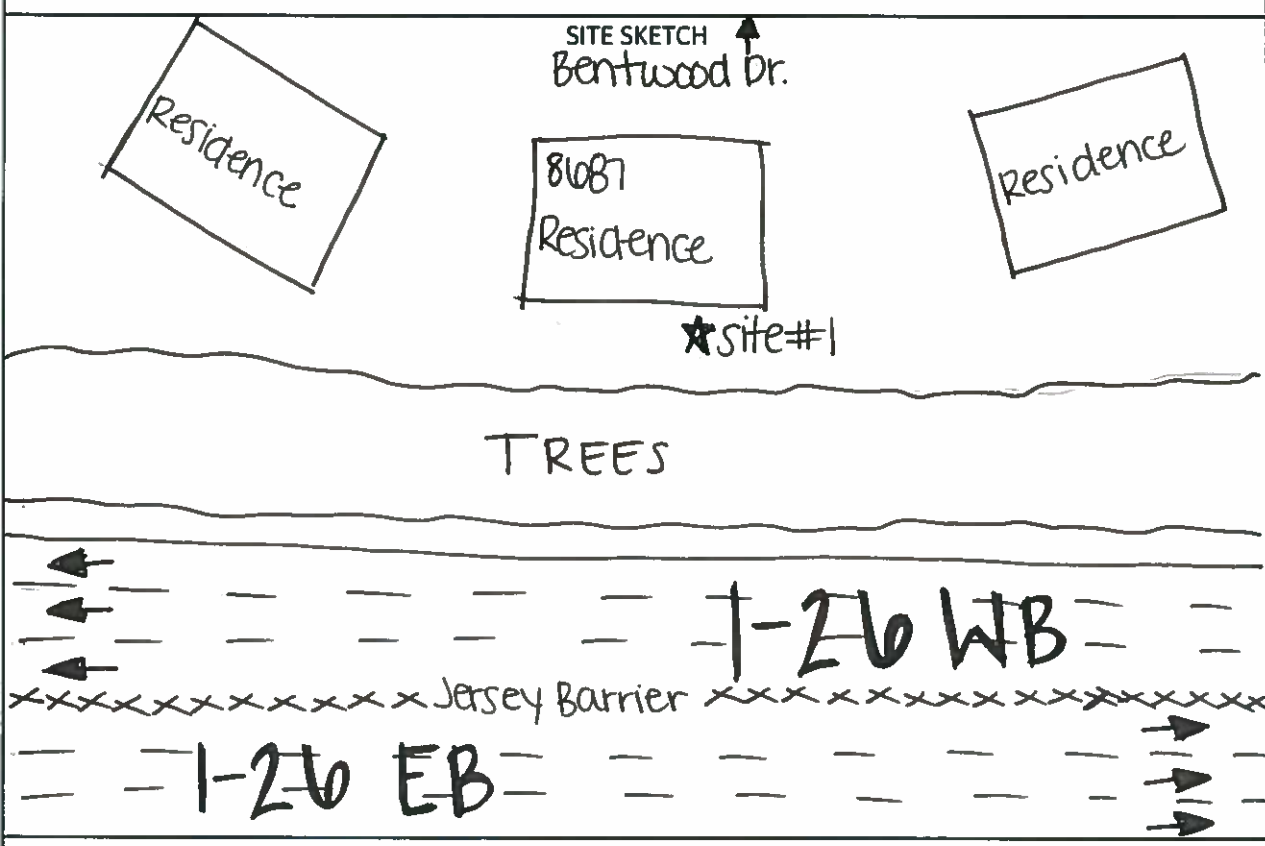 SITE SKETCH
Bentwood Dr.
Residence
8687
Residence
Residence
site#1
TREES
I-26 WB
Jersey Barrier
I-26 EB